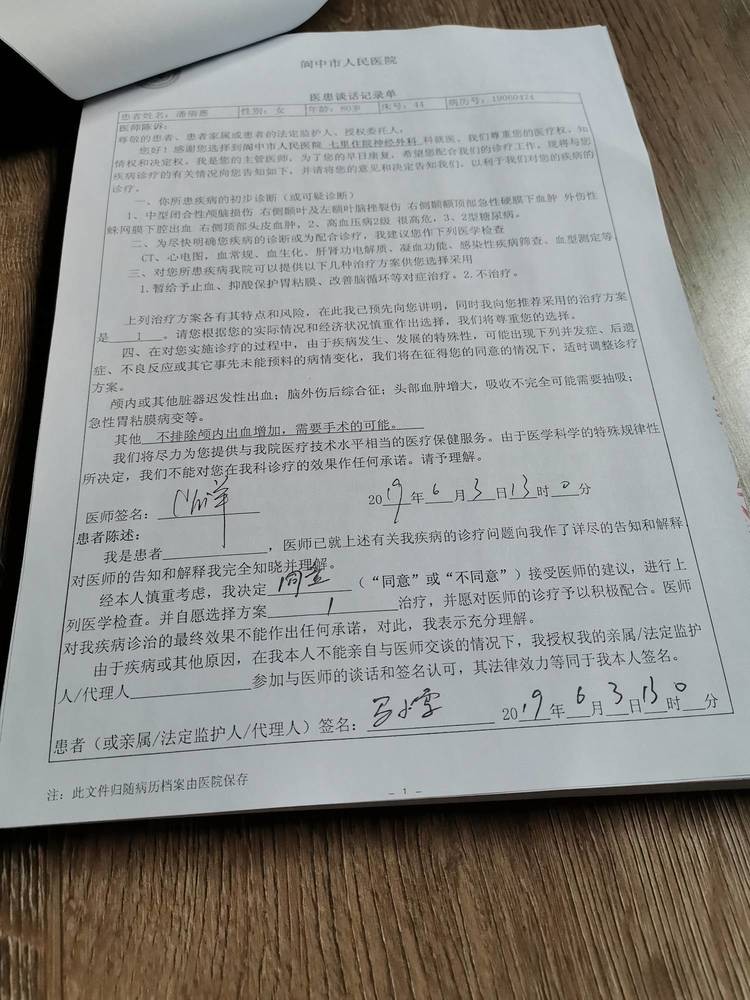 阆中市人民医院
医患谈话记录单
患者姓名：潘 性别：女 年龄：80岁 床号：44 病历号：19060424
医师陈诉：
尊敬的患者、患者家属或患者的法定监护人、授权委托人：
您好！感谢您选择到阆中市人民医院 七里住院神经外科 科就医。我们尊重您的医疗权、知
情权和决定权。我是您的主管医师，为了您的早日康复，希望您配合我们的诊疗工作，现将与您
疾病诊疗的有关情况向您告知如下，并请将您的意见和决定告知我们，以利于我们对您的疾病的
诊疗。
一、你所患疾病的初步诊断（或可疑诊断）
1、中型闭合性颅脑损伤 右侧颞叶及左额叶脑挫裂伤 右侧颞额顶部急性硬膜下血肿 外伤性
蛛网膜下腔出血 右侧顶部头皮血肿，2、高血压病2级 很高危，3、2型糖尿病。
二、为尽快明确您疾病的诊断或为配合诊疗，我建议您作下列医学检查
CT、心电图，血常规、血生化、肝肾功电解质、凝血功能、感染性疾病筛查、血型测定等
三、对您所患疾病我院可以提供以下几种治疗方案供您选择采用
1.暂给予止血、抑酸保护胃粘膜、改善脑循环等对症治疗。2.不治疗。
上列治疗方案各有其特点和风险，在此我已预先向您讲明，同时我向您推荐采用的治疗方案
是 1 。请您根据您的实际情况和经济状况慎重作出选择，我们将尊重您的选择。
四、在对您实施诊疗的过程中，由于疾病发生、发展的特殊性，可能出现下列并发症、后遗
症、不良反应或其它事先未能预料的病情变化，我们将在征得您的同意的情况下，适时调整诊疗
方案。
颅内或其他脏器迟发性出血；脑外伤后综合征；头部血肿增大，吸收不完全可能需要抽吸；
急性胃粘膜病变等。
其他 不排除颅内出血增加，需要手术的可能。
我们将尽力为您提供与我院医疗技术水平相当的医疗保健服务。由于医学科学的特殊规律性
所决定，我们不能对您在我科诊疗的效果作任何承诺。请予理解。
医师签名： 2019年6月3日13时0分
患者陈述：
我是患者 ，医师已就上述有关我疾病的诊疗问题向我作了详尽的告知和解释，
对医师的告知和解释我完全知晓并理解。
经本人慎重考虑，我决定 同意 （“同意”或“不同意”）接受医师的建议，进行上
列医学检查。并自愿选择方案 1 治疗，并愿对医师的诊疗予以积极配合。医师
对我疾病诊治的最终效果不能作出任何承诺，对此，我表示充分理解。
由于疾病或其他原因，在我本人不能亲自与医师交谈的情况下，我授权我的亲属/法定监护
人/代理人 参加与医师的谈话和签名认可，其法律效力等同于我本人签名。
患者（或亲属/法定监护人/代理人）签名： 2019年6月3日13时0分
注：此文件归随病历档案由医院保存
- 1 -